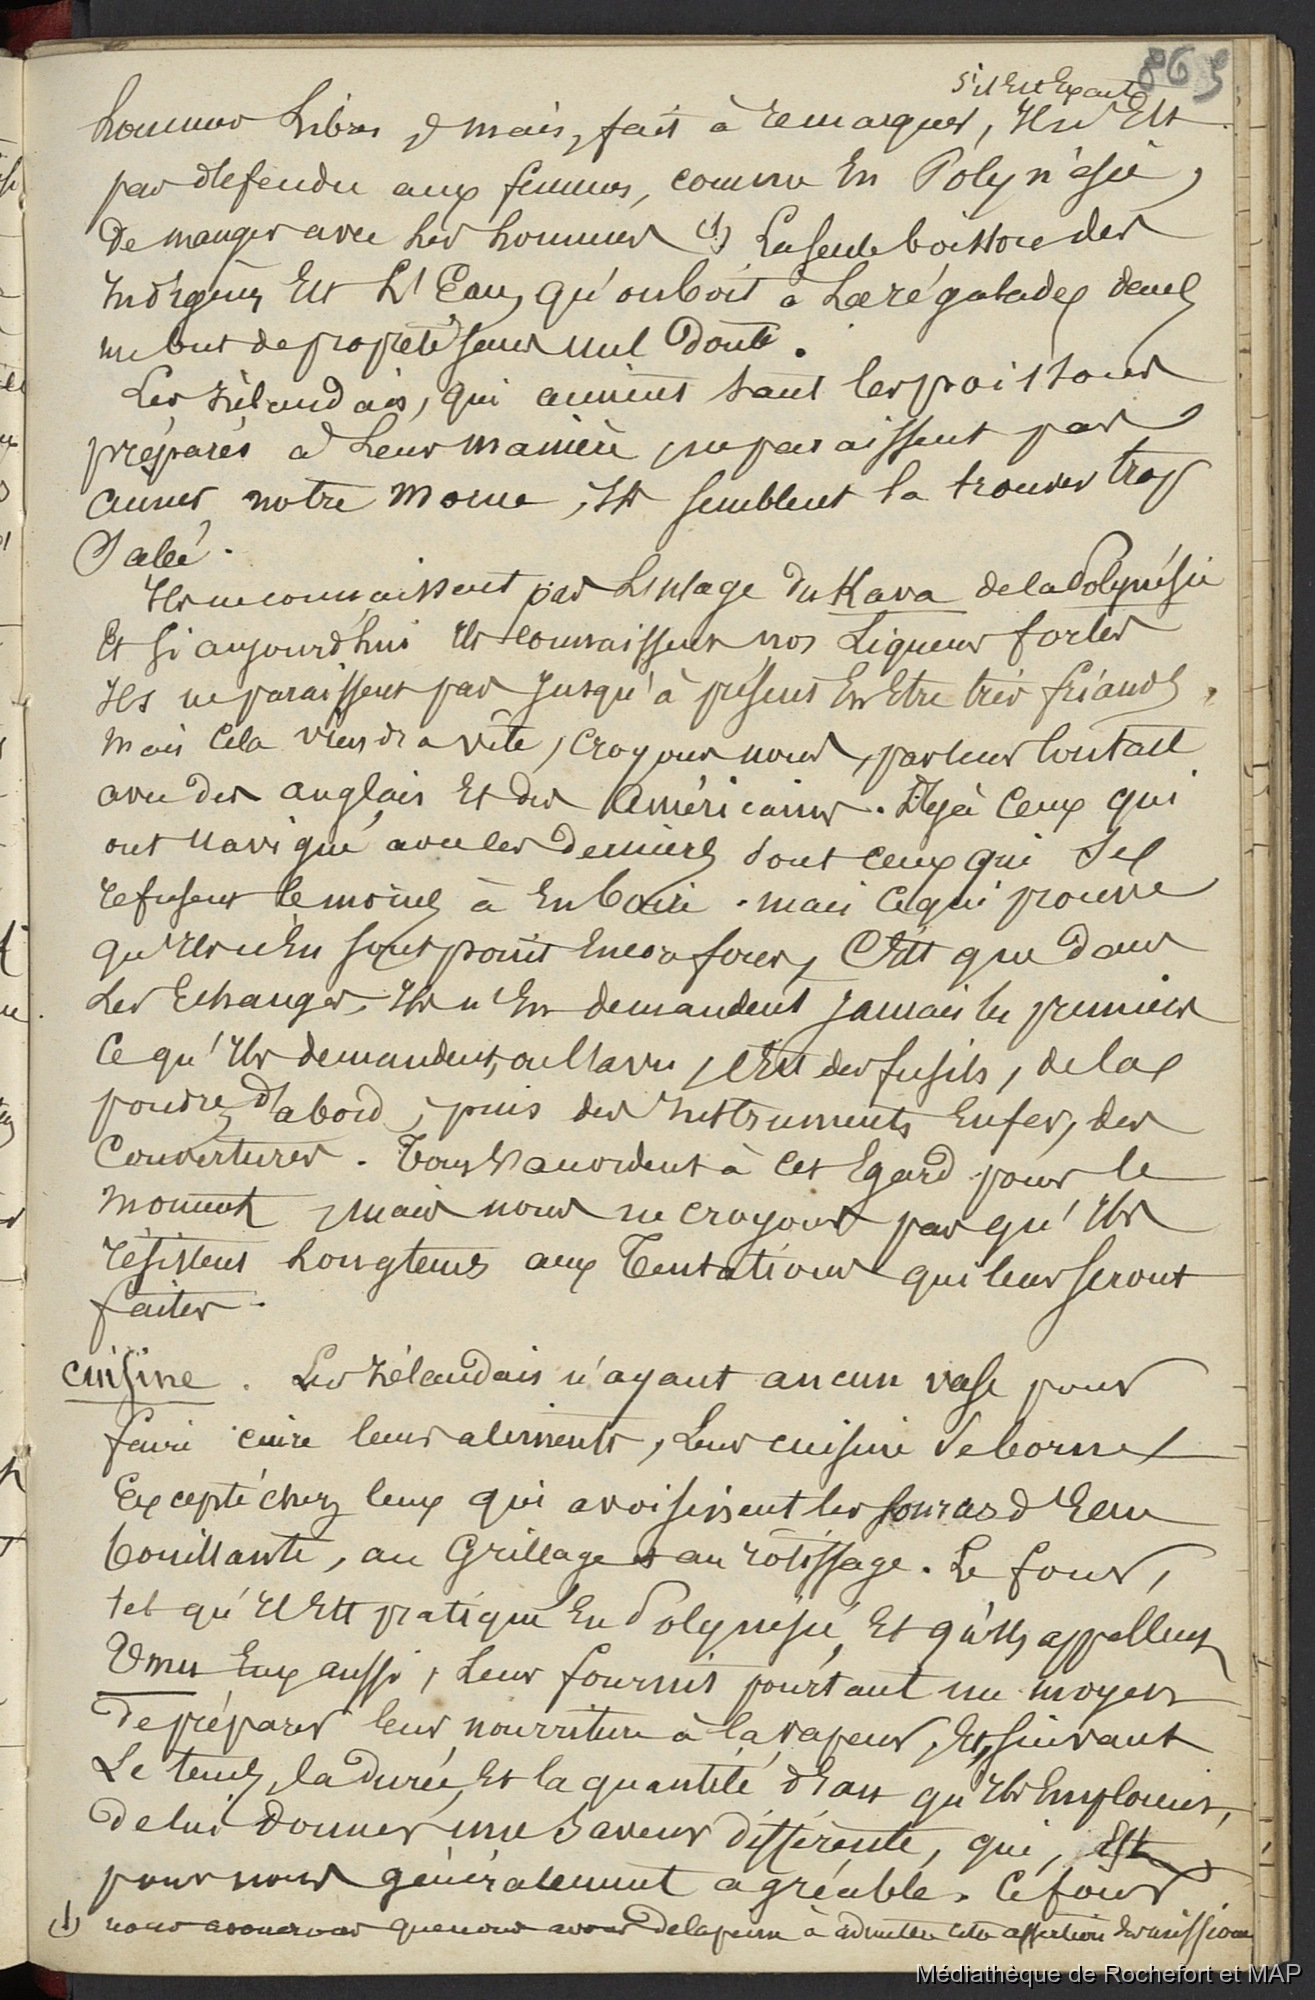 865
s'il est exact
hommes libres, mais, fait à remarquer, il n'est
pas défendu aux femmes, comme en Polynésie,
de manger avec les hommes (1) La seule boisson des
indigènes est l'Eau, qu'on boit à la régalade, dans
un but de propreté sans nul doute.
Les zélandais, qui aiment tant les poissons
préparés à leur manière, ne paraissent pas
aimer notre morue, ils semblent la trouver trop
salée.
Ils ne connaissent pas l'usage du Kava de la Polynésie
et si aujourd'hui ils connaissent nos liqueurs fortes
ils ne paraissent pas jusqu'à présent en être très friands,
mais cela viendra vite, croyons nous, par leur contact
avec des anglais et des américains. Déjà ceux qui
ont navigué avec les derniers sont ceux qui se
refusent le moins à en boire. mais ce qui prouve
qu'ils n'en sont point encore fous, c'est que dans
les échanges, ils n'en demandent jamais les premiers
ce qu'ils demandent, c'est des fusils, de la
poudre d'abord, puis des instruments en fer, des
couvertures. Tous s'accordent à cet égard pour le
moment, mais nous ne croyons pas qu'ils
résistent longtems aux tentations qui leur seront
faites.
cuisine. Les zélandais n'ayant aucun vase pour
faire cuire leurs aliments, leur cuisine se borne,
excepté chez ceux qui avoisinent les sources d'eau
bouillante, au grillage et au rôtissage. Le four,
tel qu'il est pratiqué en Polynésie, et qu'ils appellent
Umu eux aussi, leur fournit pourtant un moyen
de préparer leur nourriture à la vapeur, et, suivant
le tems, la durée, et la quantité d'eau qu'ils emploient,
de lui donner une saveur différente, qui, est
pour nous généralement agréable. Ce four
(1) nous avouerons que nous avons de la peine à admettre cette assertion des mission
Médiathèque de Rochefort et MAP